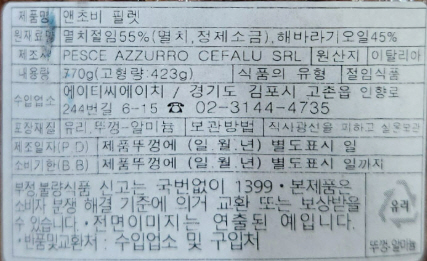 제품명 앤초비 필렛
원재료명 멸치절임55%(멸치,정제소금),해바라기오일45%
제조사 PESCE AZZURRO CEFALU SRL 원산지 이탈리아
내용량 770g(고형량:423g) 식품의 유형 절임식품
수입업소 에이티씨에이치 / 경기도 김포시 고촌읍 인향로
244번길 6-15 ☎ 02-3144-4735
포장재질 유리,뚜껑-알미늄 보관방법 직사광선을 피하고 실온보관
제조일자(P.D) 제품뚜껑에 (일.월.년) 별도표시 일
소비기한(B.B) 제품뚜껑에 (일.월.년) 별도표시 일까지
부정·불량식품 신고는 국번없이 1399·본제품은
소비자 분쟁 해결 기준에 의거 교환 또는 보상받을
수 있습니다.·전면이미지는 연출된 예입니다.
·반품및교환처 : 수입업소 및 구입처
유리
뚜껑:알미늄